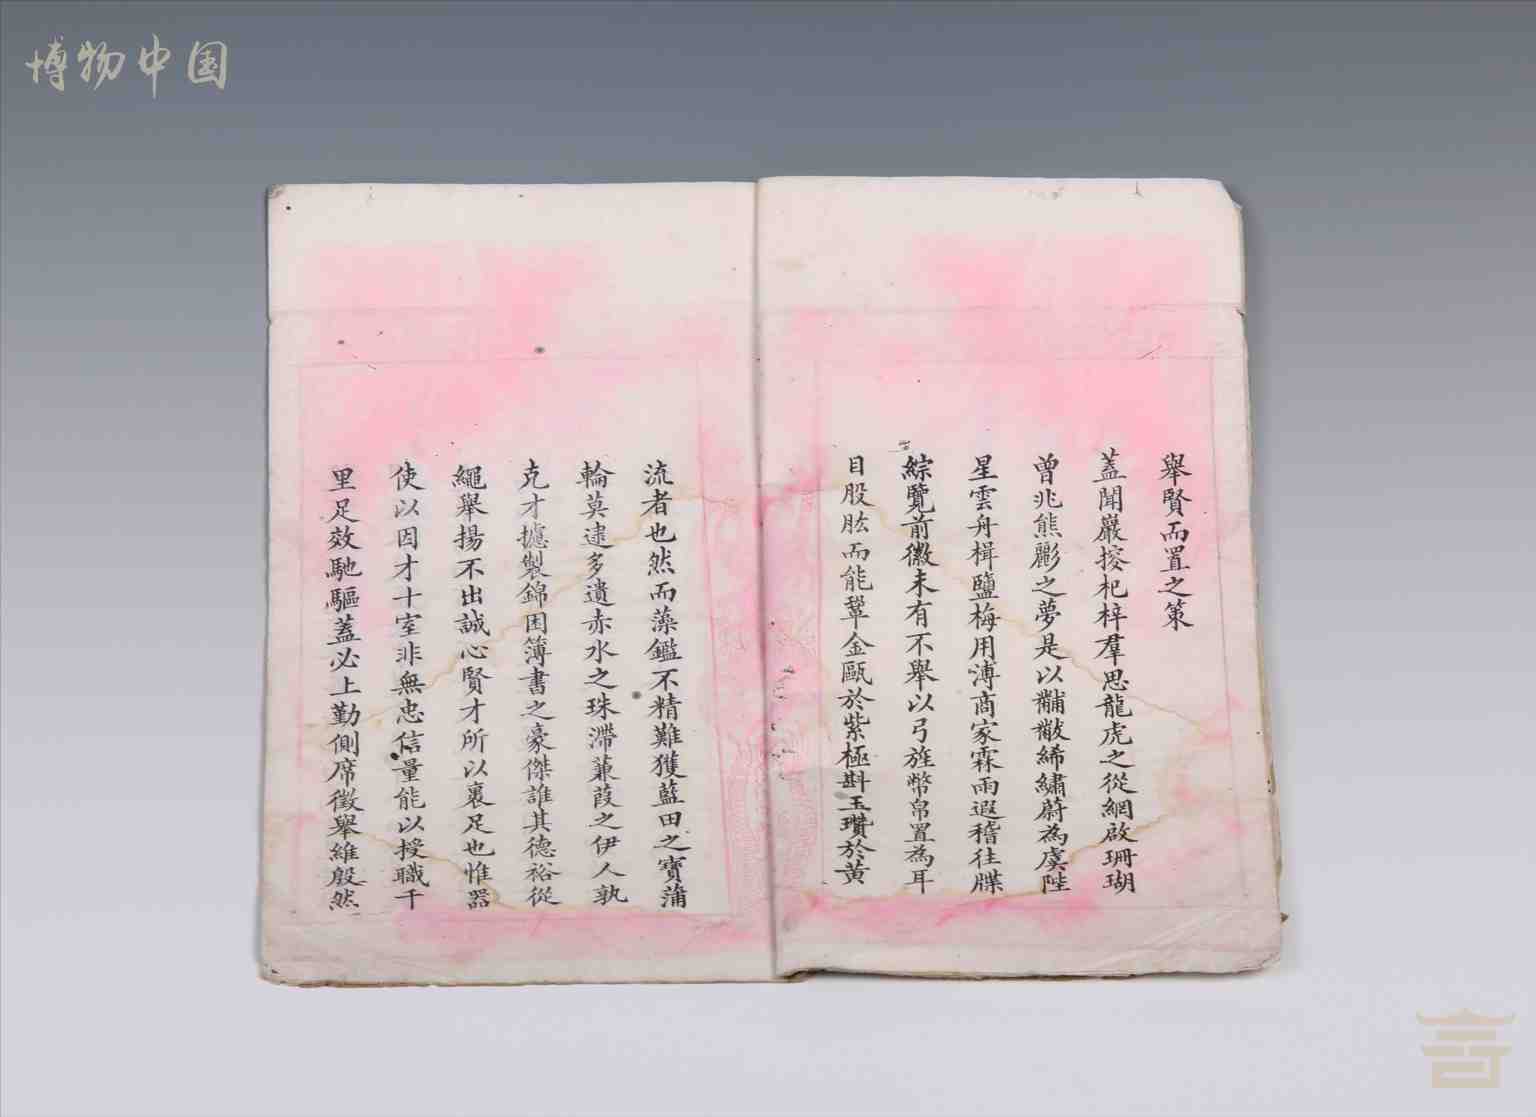 博物中国
舉賢而置之策
蓋聞巖搜杞梓羣思龍虎之從網啟珊瑚
曾兆熊彲之夢是以黼黻絺繡蔚為虞陛
星雲舟楫鹽梅用溥商家霖雨遐稽往牒
綜覽前徽未有不舉以弓旌幣帛置為耳
目股肱而能鞏金甌於紫極斟玉瓚於黃
流者也然而藻鑑不精難獲藍田之寶蒲
輪莫逮多遺赤水之珠滯蒹葭之伊人孰
克才攄製錦困簿書之豪傑誰其德裕從
繩舉揚不出誠心賢才所以裹足也惟器
使以因才十室非無忠信量能以授職千
里足效馳驅蓋必上勤側席徵舉維殷然